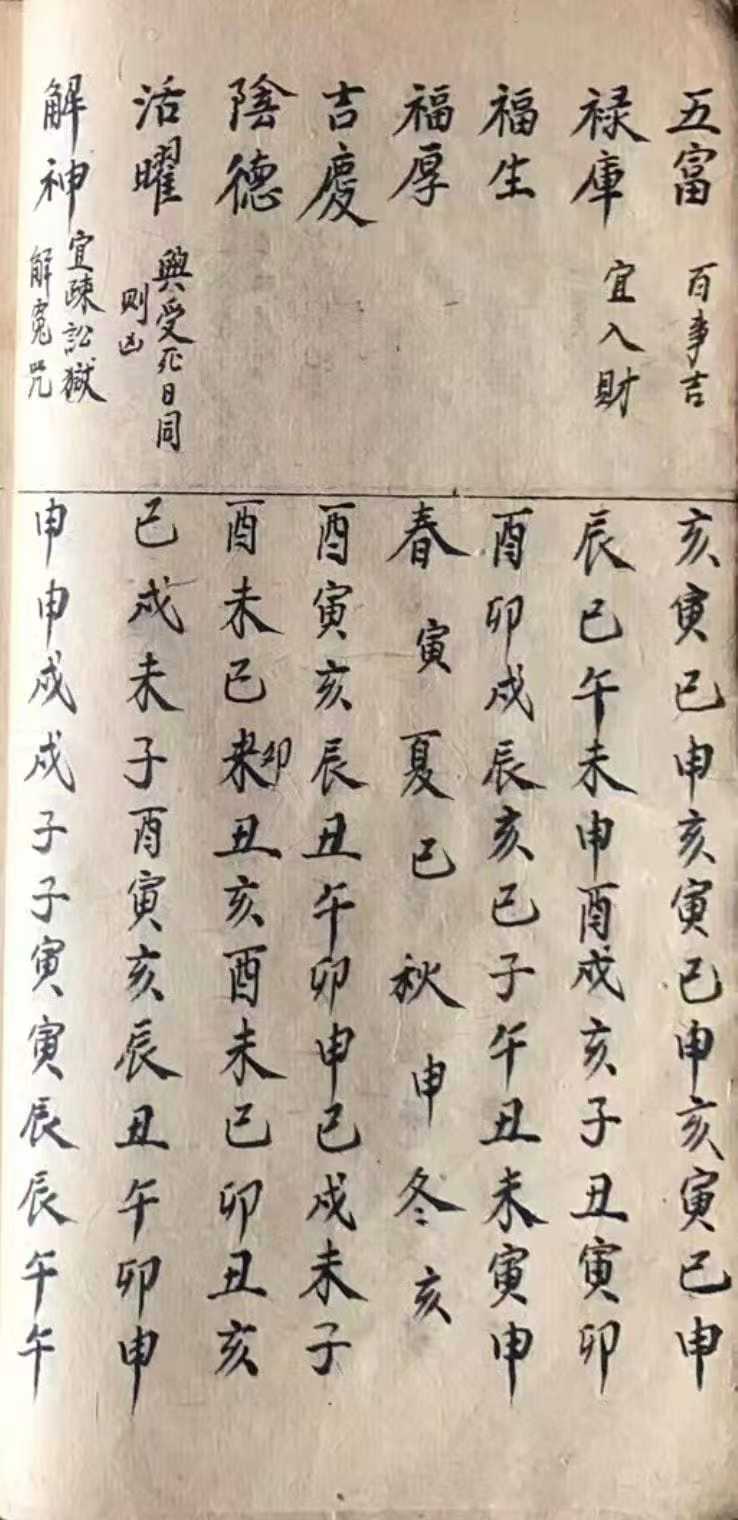 五富 百事吉 亥寅巳申亥寅巳申亥寅巳申
禄庫 宜入財 辰巳午未申酉戌亥子丑寅卯
福生 酉卯戌辰亥巳子午丑未寅申
福厚 春寅夏巳秋申冬亥
吉慶 酉寅亥辰丑午卯申巳戌未子
陰德 酉未巳卯丑亥酉未巳卯丑亥
活曜 與受死日同則凶 巳戌未子酉寅亥辰丑午卯申
解神 宜疎訟獄解冤咒 申申戌戌子子寅寅辰辰午午